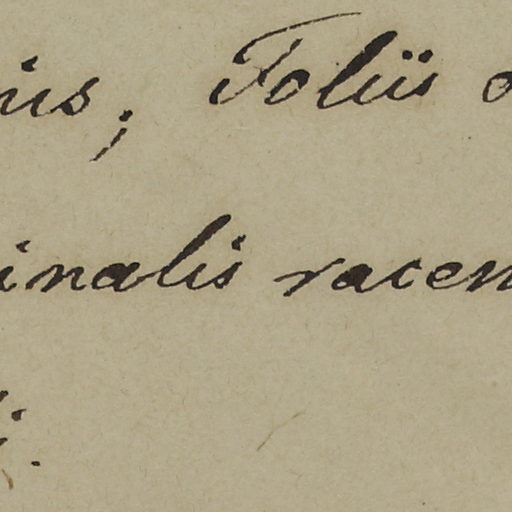 ius, Foliis
inalis racem
i.